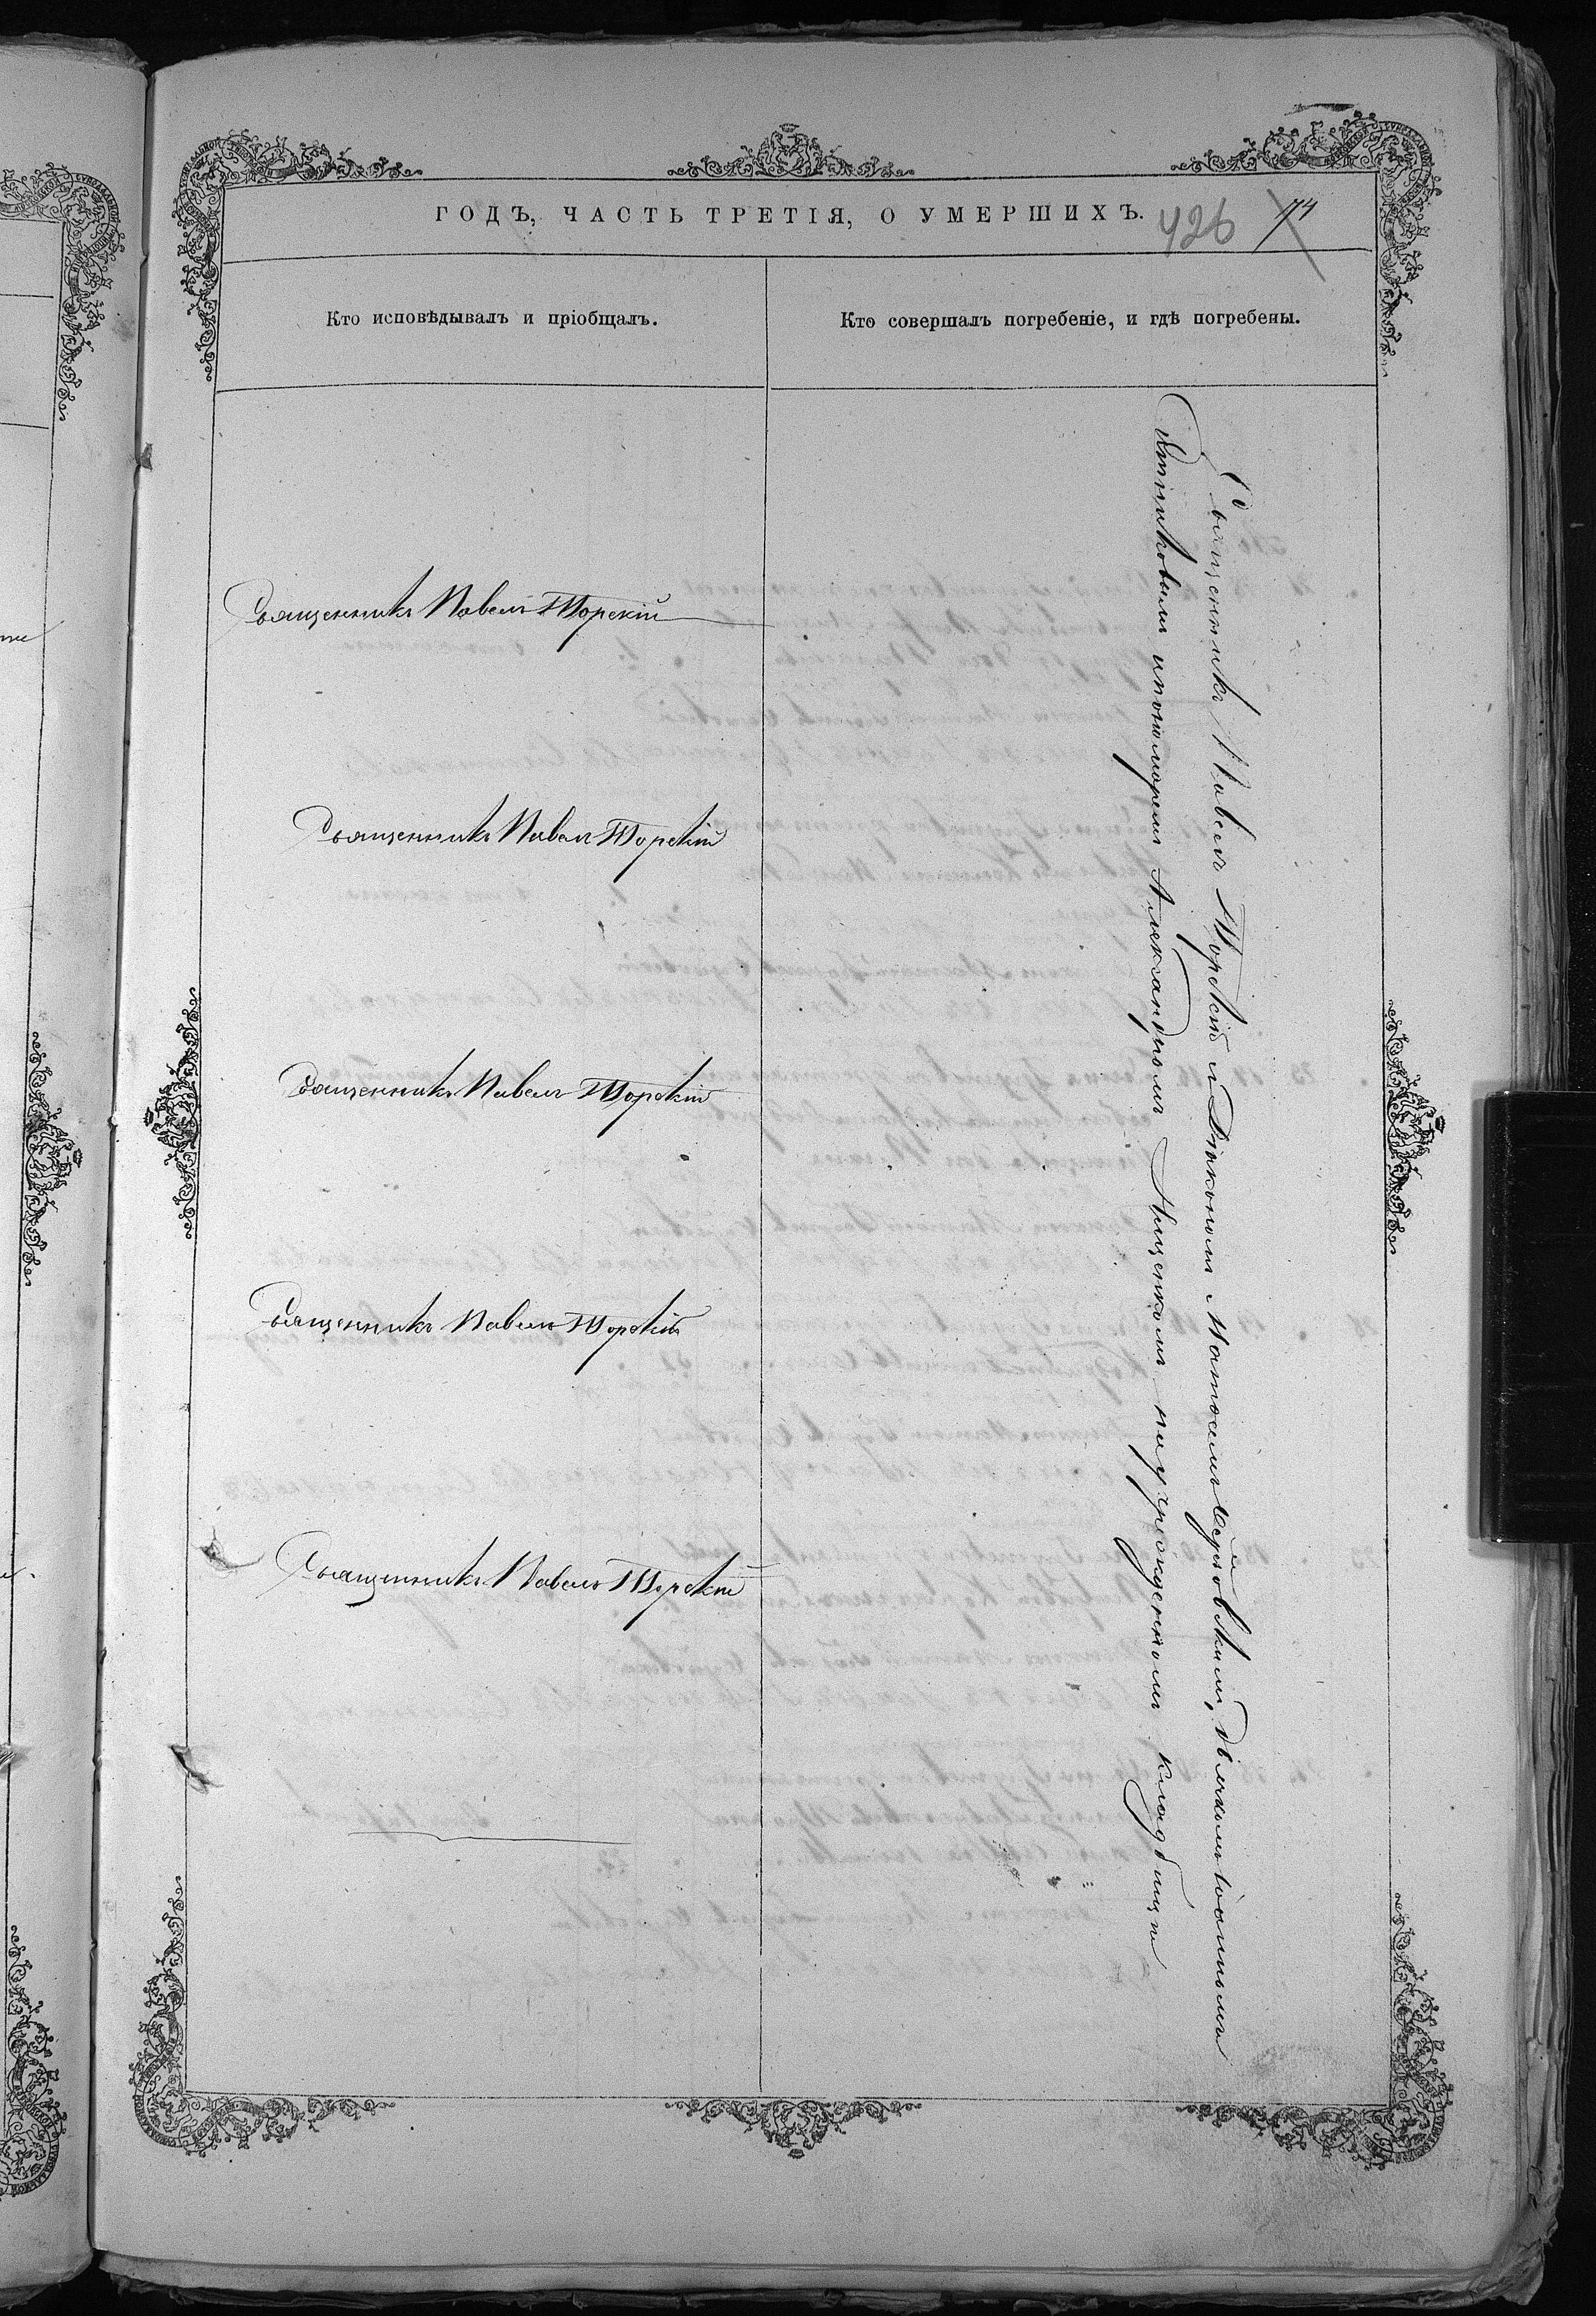 ГОДЪ, ЧАСТЬ ТРЕТІЯ, О УМЕРШИХЪ.
426 74
Кто исповѣдывалъ и пріобщалъ.
Кто совершалъ погребеніе, и гдѣ погребены.
Священникъ Павелъ Торскій
Священникъ Павелъ Торскій
Священникъ Павелъ Торскій
Священникъ Павелъ Торскій
Священникъ Павелъ Торскій
Священникъ Павелъ Торскій съ Діакономъ дьячкомъ Іоанномъ
Ситниковымъ и пономаремъ Александромъ на учрежденномъ кладбищѣ